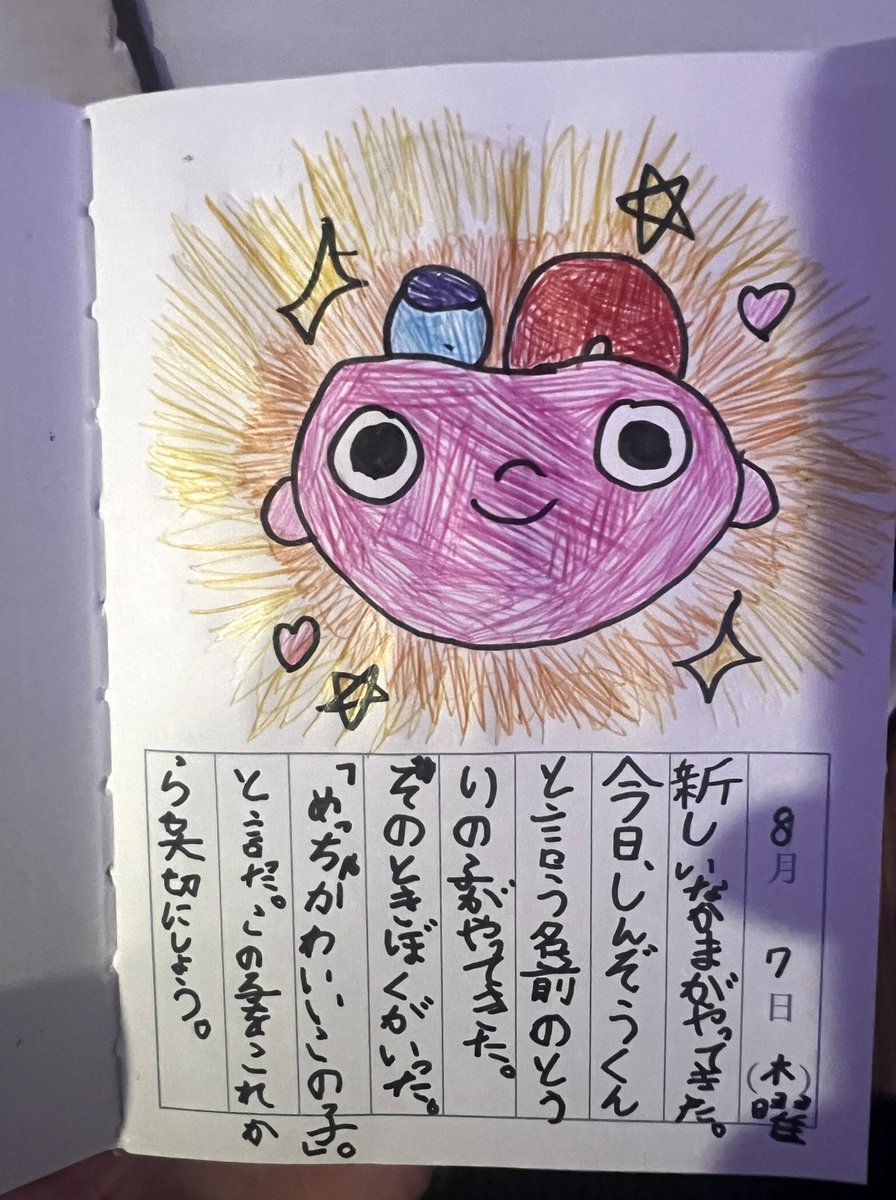 8月7日(木)曜
新しいなかまがやってきた。
今日、しんぞうくん
と言う名前のとう
りの子がやってきた。
そのときぼくがいった。
「めっちゃかわいいこの子」。
と言だ。この子をこれか
ら大切にしよう。